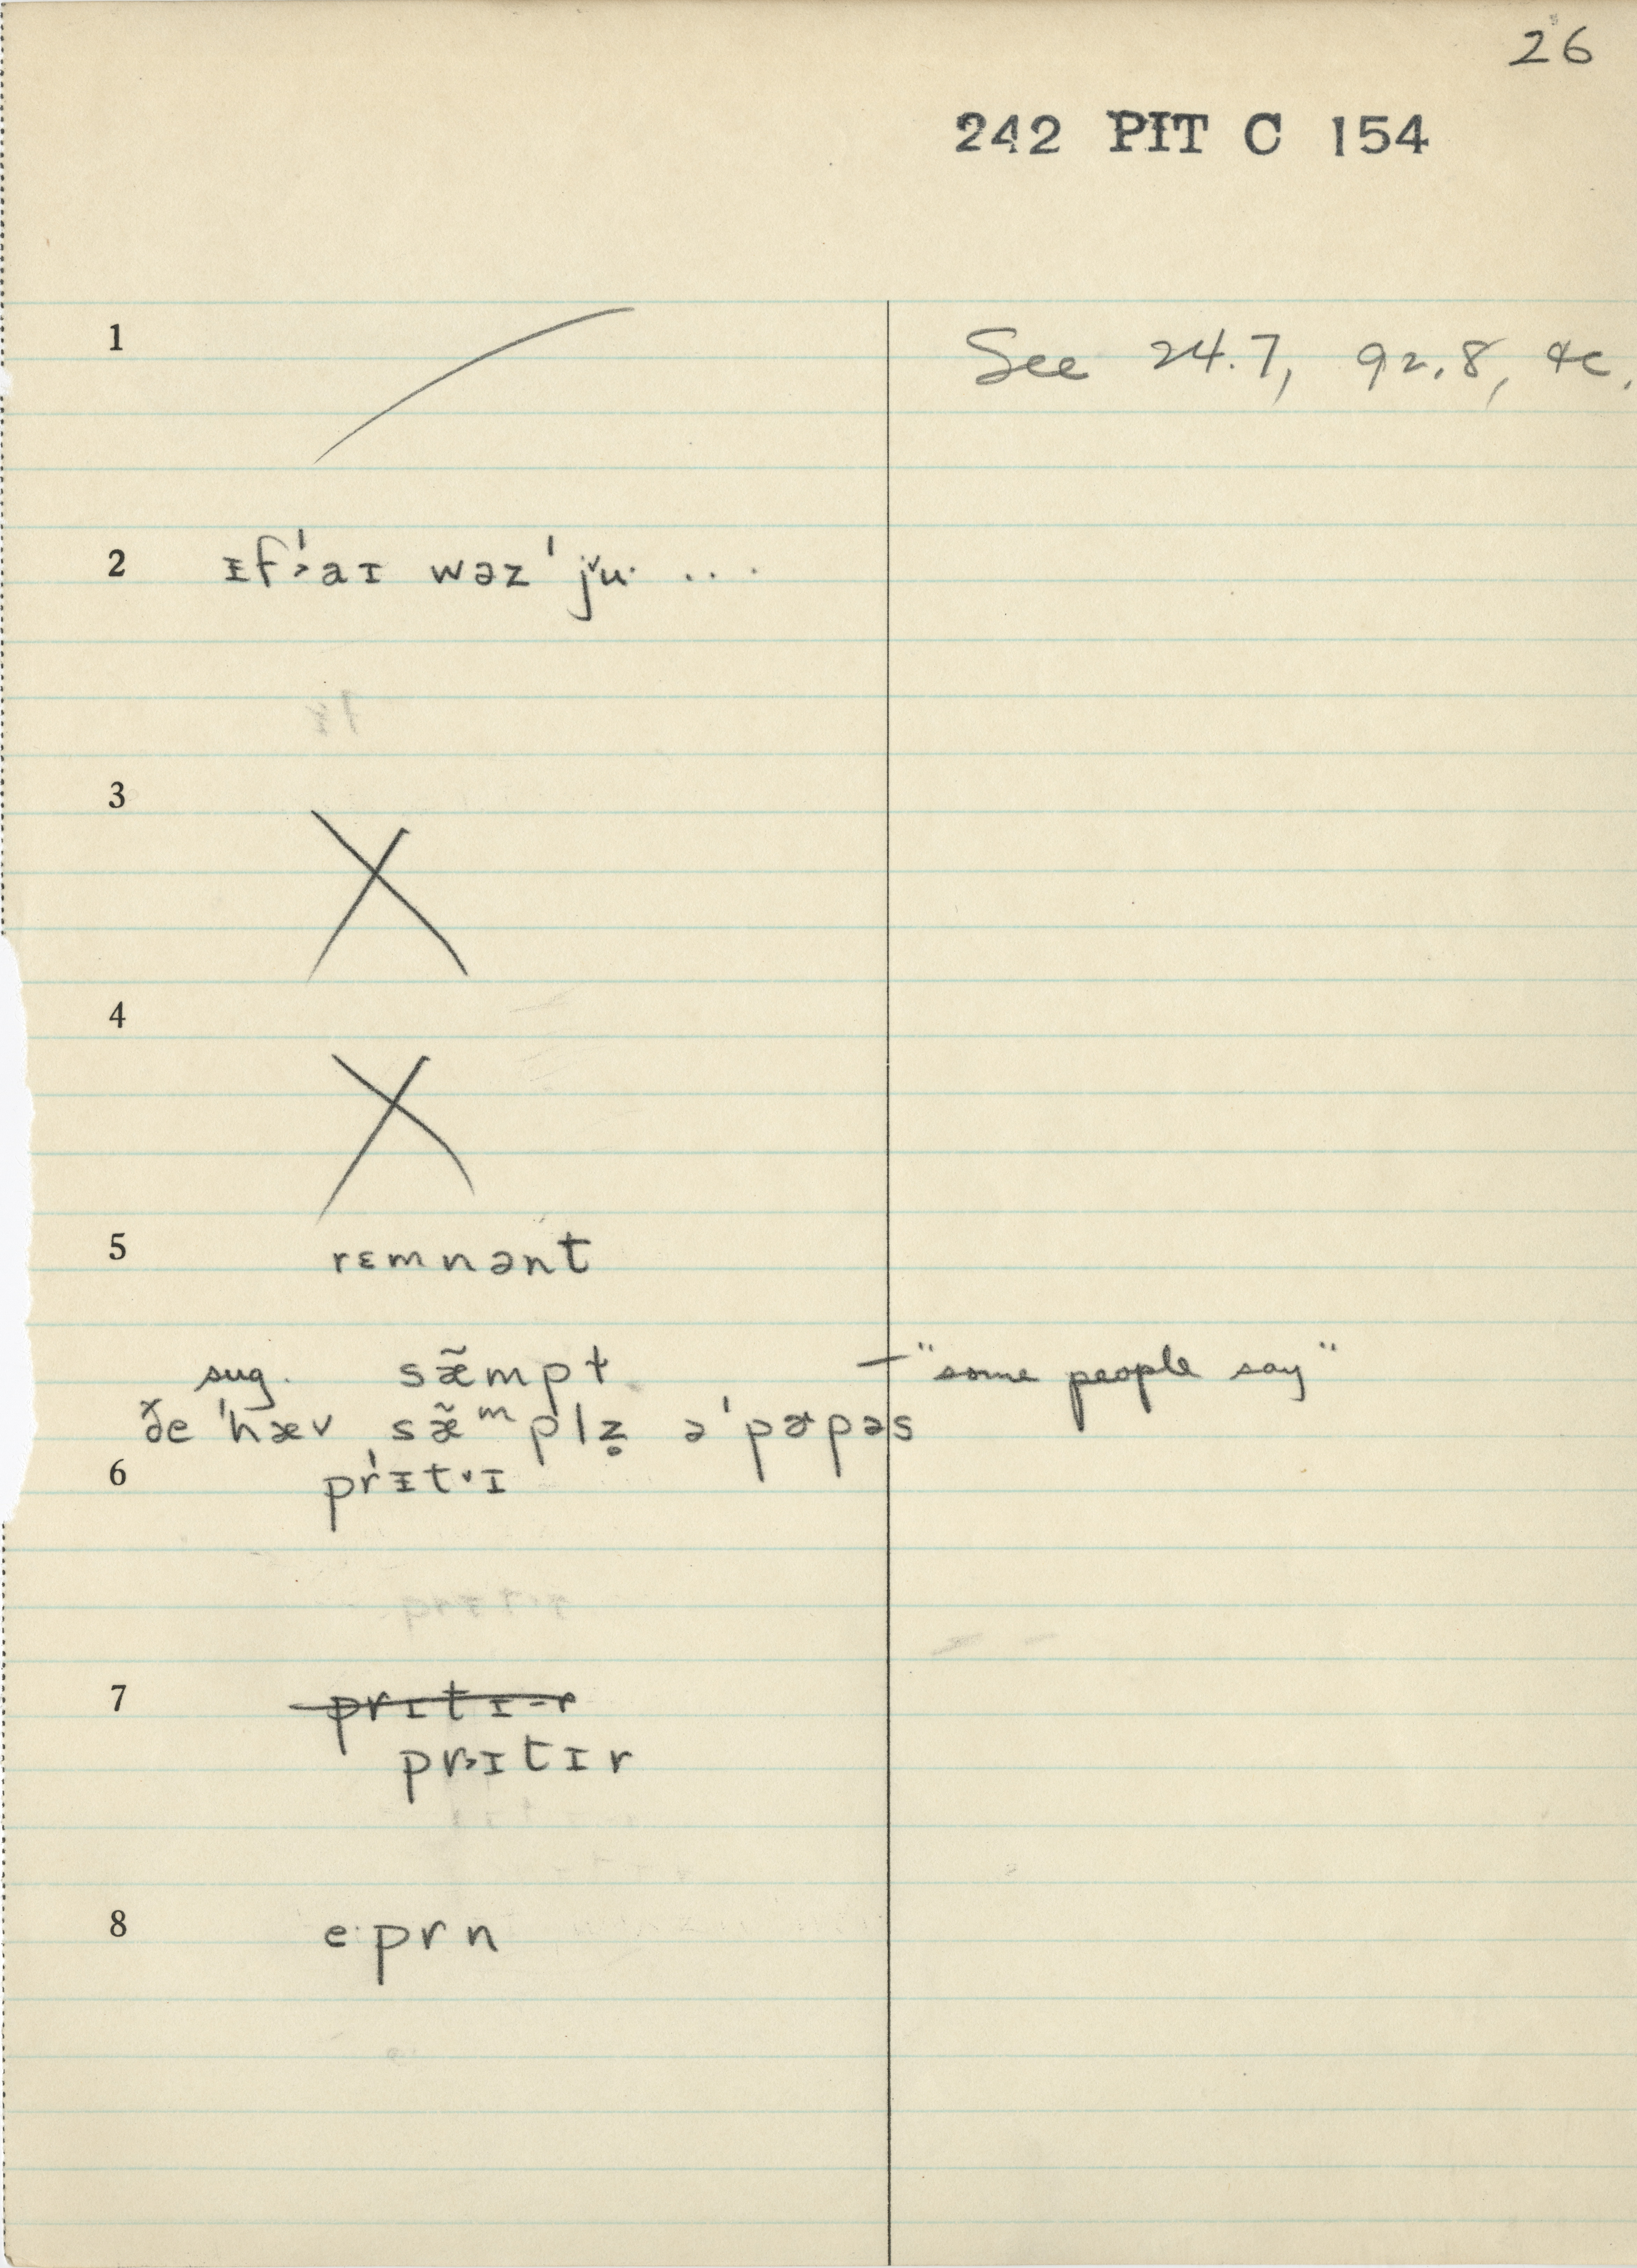 26
242 PIT C 154
1 See 24.7, 92.8, &c.
2 ɪf'˃aɪ wəz 'ǰu· ...
3
4
5 rɛmnənt
sug. sæ̃mpt — "some people say"
ðe 'hæv sæ̃ᵐplz̥ ə'pɚpəs
6 pr'ɪt˅ɪ
7 prɪtɪ-r
pr˃ɪtɪr
8 e·prn